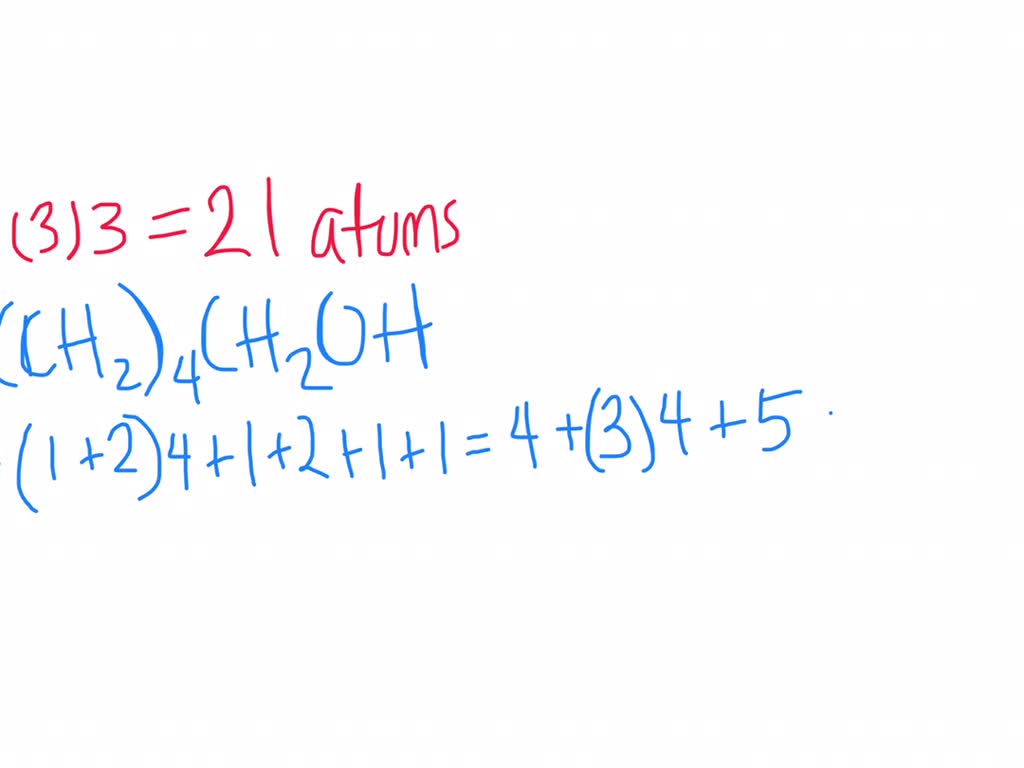 (3)3 = 21 atoms
(CH₂)₄CH₂OH
(1+2)4+1+2+1+1 = 4+(3)4+5